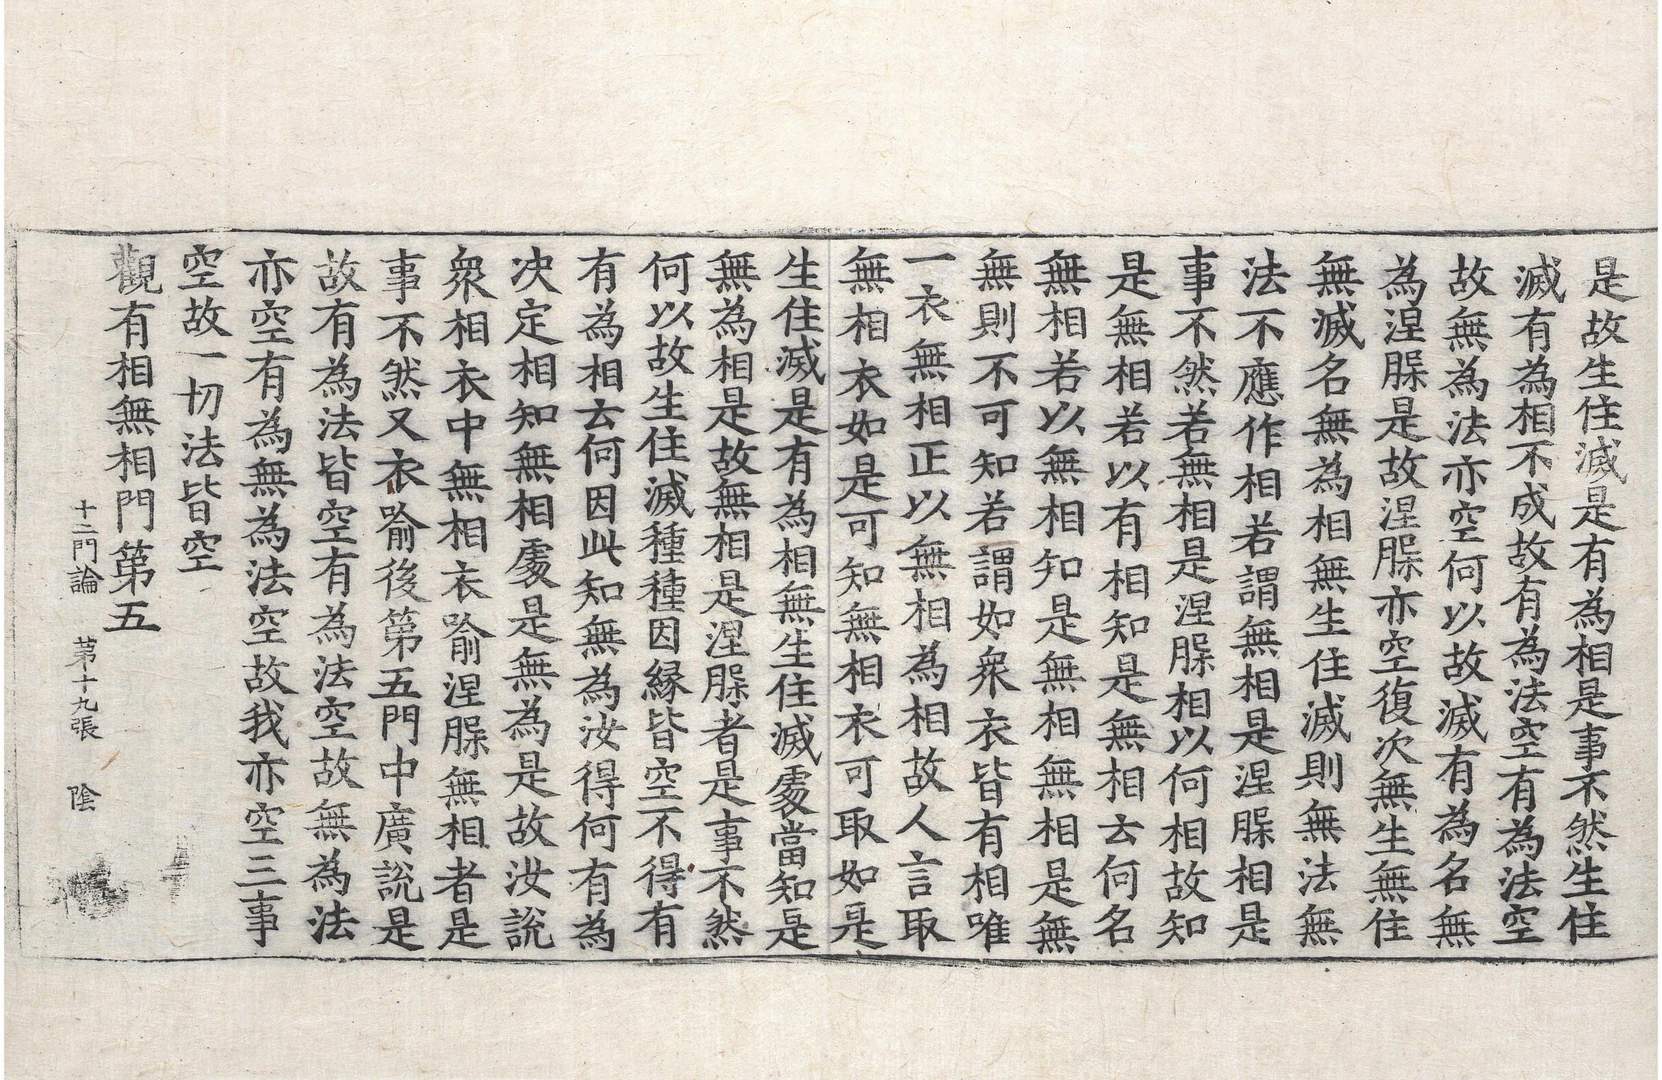 是故生住滅是有為相是事不然生住
滅有為相不成故有為法空有為法空
故無為法亦空何以故滅有為名無
為涅槃是故涅槃亦空復次無生無住
無滅名無為相無生住滅則無法無
法不應作相若謂無相是涅槃相是
事不然若無相是涅槃相以何相故知
是無相若以有相知是無相云何名
無相若以無相知是無相無相是無
無則不可知若謂如衆衣皆有相唯
一衣無相正以無相為相故人言取
無相衣如是可知無相衣可取如是
生住滅是有為相無生住滅處當知是
無為相是故無相是涅槃者是事不然
何以故生住滅種種因縁皆空不得有
有為相云何因此知無為汝得何有為
决定相知無相處是無為是故汝說
衆相衣中無相衣喻涅槃無相者是
事不然又衣喻後第五門中廣說是
故有為法皆空有為法空故無為法
亦空有為無為法空故我亦空三事
空故一切法皆空
觀有相無相門第五
十二門論　第十九張　陰